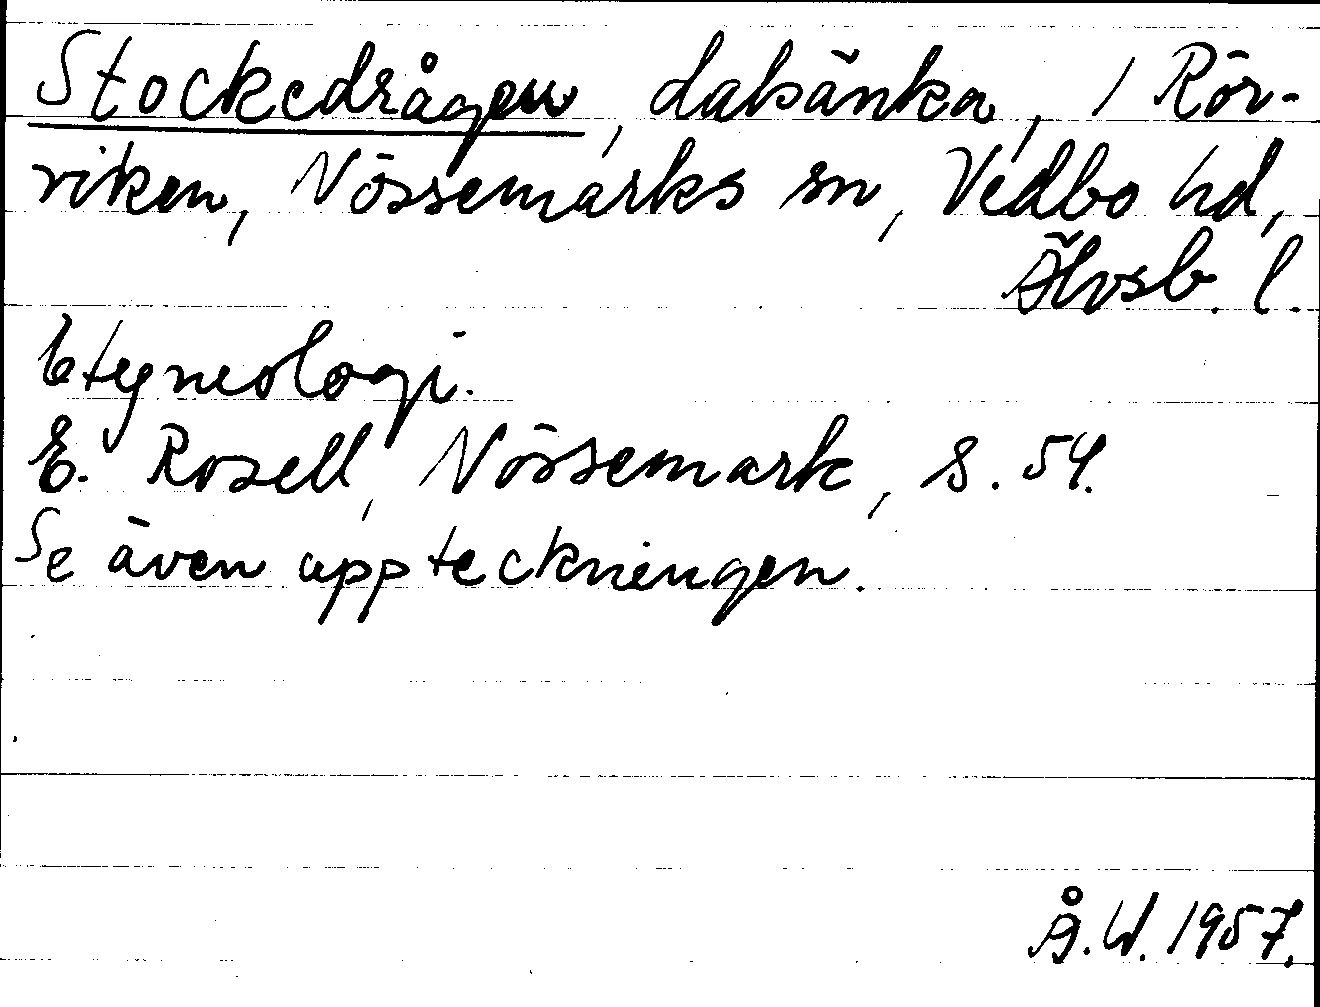 Stockedrågen, dalsänka, 1 Rör-
viken, Nössemarks sn, Vedbo hd,
Älvsb. l.
Etymologi.
E. Rosell, Nössemark, s. 54.
Se även uppteckningen.
Å.W. 1957.